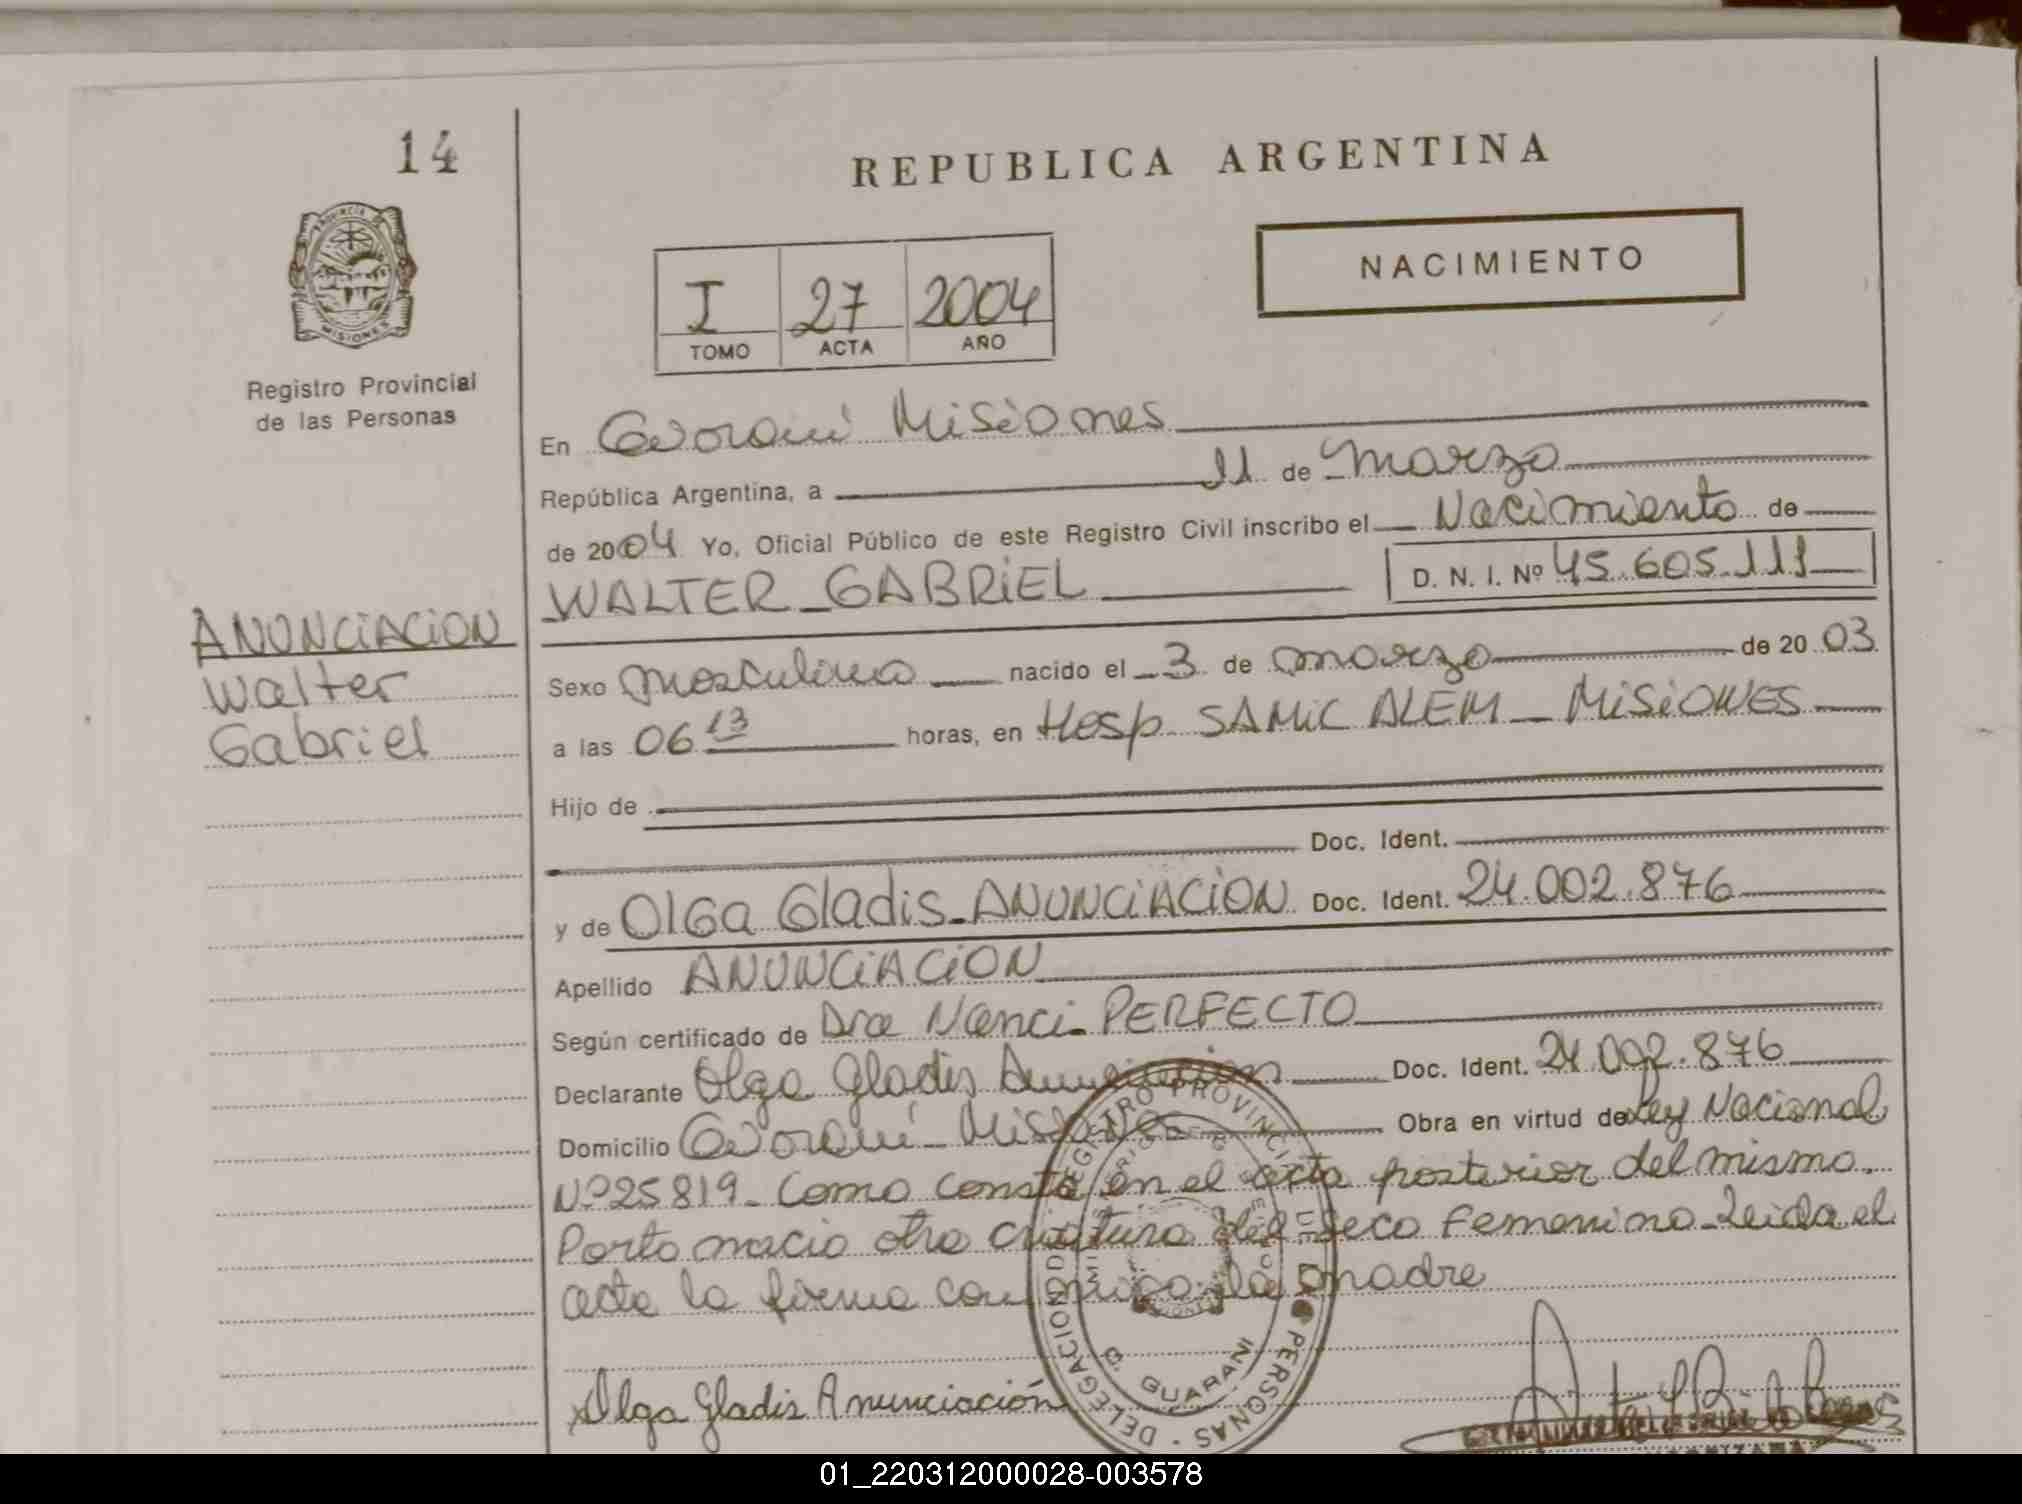 14
REPUBLICA ARGENTINA
PROVINCIA DE
MISIONES
Registro Provincial
de las Personas
NACIMIENTO
I 27 2004
TOMO ACTA AÑO
En Guaraní Misiones
República Argentina, a 11 de marzo
de 2004 Yo, Oficial Público de este Registro Civil inscribo el Nacimiento de
WALTER GABRIEL D. N. I. Nº 45.605.111
ANUNCIACION
Walter
Gabriel
Sexo masculino nacido el 3 de marzo de 2003
a las 06 13 horas, en Hosp SAMIC ALEM - MISIONES
Hijo de
Doc. Ident.
y de OlGa Gladis ANUNCIACION Doc. Ident. 24.002.876
Apellido ANUNCIACION
Según certificado de Dra Nanci PERFECTO
Declarante Olga Gladis Anunciación Doc. Ident. 24.002.876
Domicilio Guaraní - Misiones Obra en virtud de Ley Nacional
Nº 25819 - Como consta en el acta posterior del mismo
Parto nacio otra criatura del seco Femenino Leida el
acta la firma conmigo la madre
Olga Gladis Anunciación
REGISTRO PROVINCIAL DE LAS PERSONAS - DELEGACION
GUARANI
01_220312000028-003578